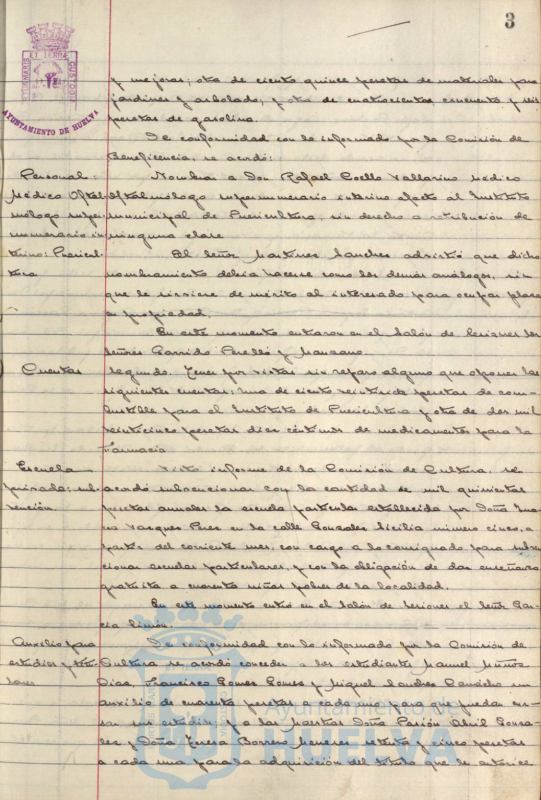 3
AYUNTAMIENTO DE HUELVA
y mejoras; otra de ciento quince pesetas de materiales para
jardines y arbolado, y otra de cuatrocientas cincuenta y seis
pesetas de gasolina.
De conformidad con lo informado por la Comisión de
Beneficencia, se acordó:
Personal:
Médico Oftal-
mólogo super-
numerario in-
terino: Puericul-
tura
Nombrar a Don Rafael Coello Vallarino Médico
Oftalmólogo supernumerario interino afecto al Instituto
municipal de Puericultura, sin derecho a retribución de
ninguna clase.
El Señor Martinez Sanchez advirtió que dicho
nombramiento debia hacerse como los demás análogos, sin
que le sirviere de mérito al interesado para ocupar plaza
en propiedad.
En este momento entraron en el Salón de Sesiones los
Señores Garrido Perelló y Manzano.
Cuentas
Segundo. Tener por vistas sin reparo alguno que oponer las
siguientes cuentas: Una de ciento veintiseis pesetas de com-
bustible para el Instituto de Puericultura y otra de dos mil
veinticinco pesetas diez céntimos de medicamentos para la
Farmacia
Escuela
privada: sub-
vención.
Visto informe de la Comisión de Cultura, se
acordó subvencionar con la cantidad de mil quinientas
pesetas anuales la escuela particular establecida por Doña Ma-
ria Vazquez Perez en la calle Gonzalez Sicilia número cinco, a
partir del corriente mes, con cargo a lo consignado para subven-
cionar escuelas particulares, y con la obligación de dar enseñanza
gratuita a cuarenta niñas pobres de la localidad.
En este momento entró en el Salón de Sesiones el Señor Gar-
cia Limón.
Auxilio para
estudios y titu-
lares
De conformidad con lo informado por la Comisión de
Cultura se acordó conceder a los estudiantes Manuel Muñoz
Diaz, Francisco Gomez Gomez y Miguel Landres un
auxilio de cuarenta pesetas a cada uno para que puedan cur-
sar sus estudios, y a las maestras Doña Pasión Abril Gonza-
lez y Doña Teresa Borrero setenta y cinco pesetas
a cada una para la adquisición del título que le autorice
Ayuntamiento de
HUELVA